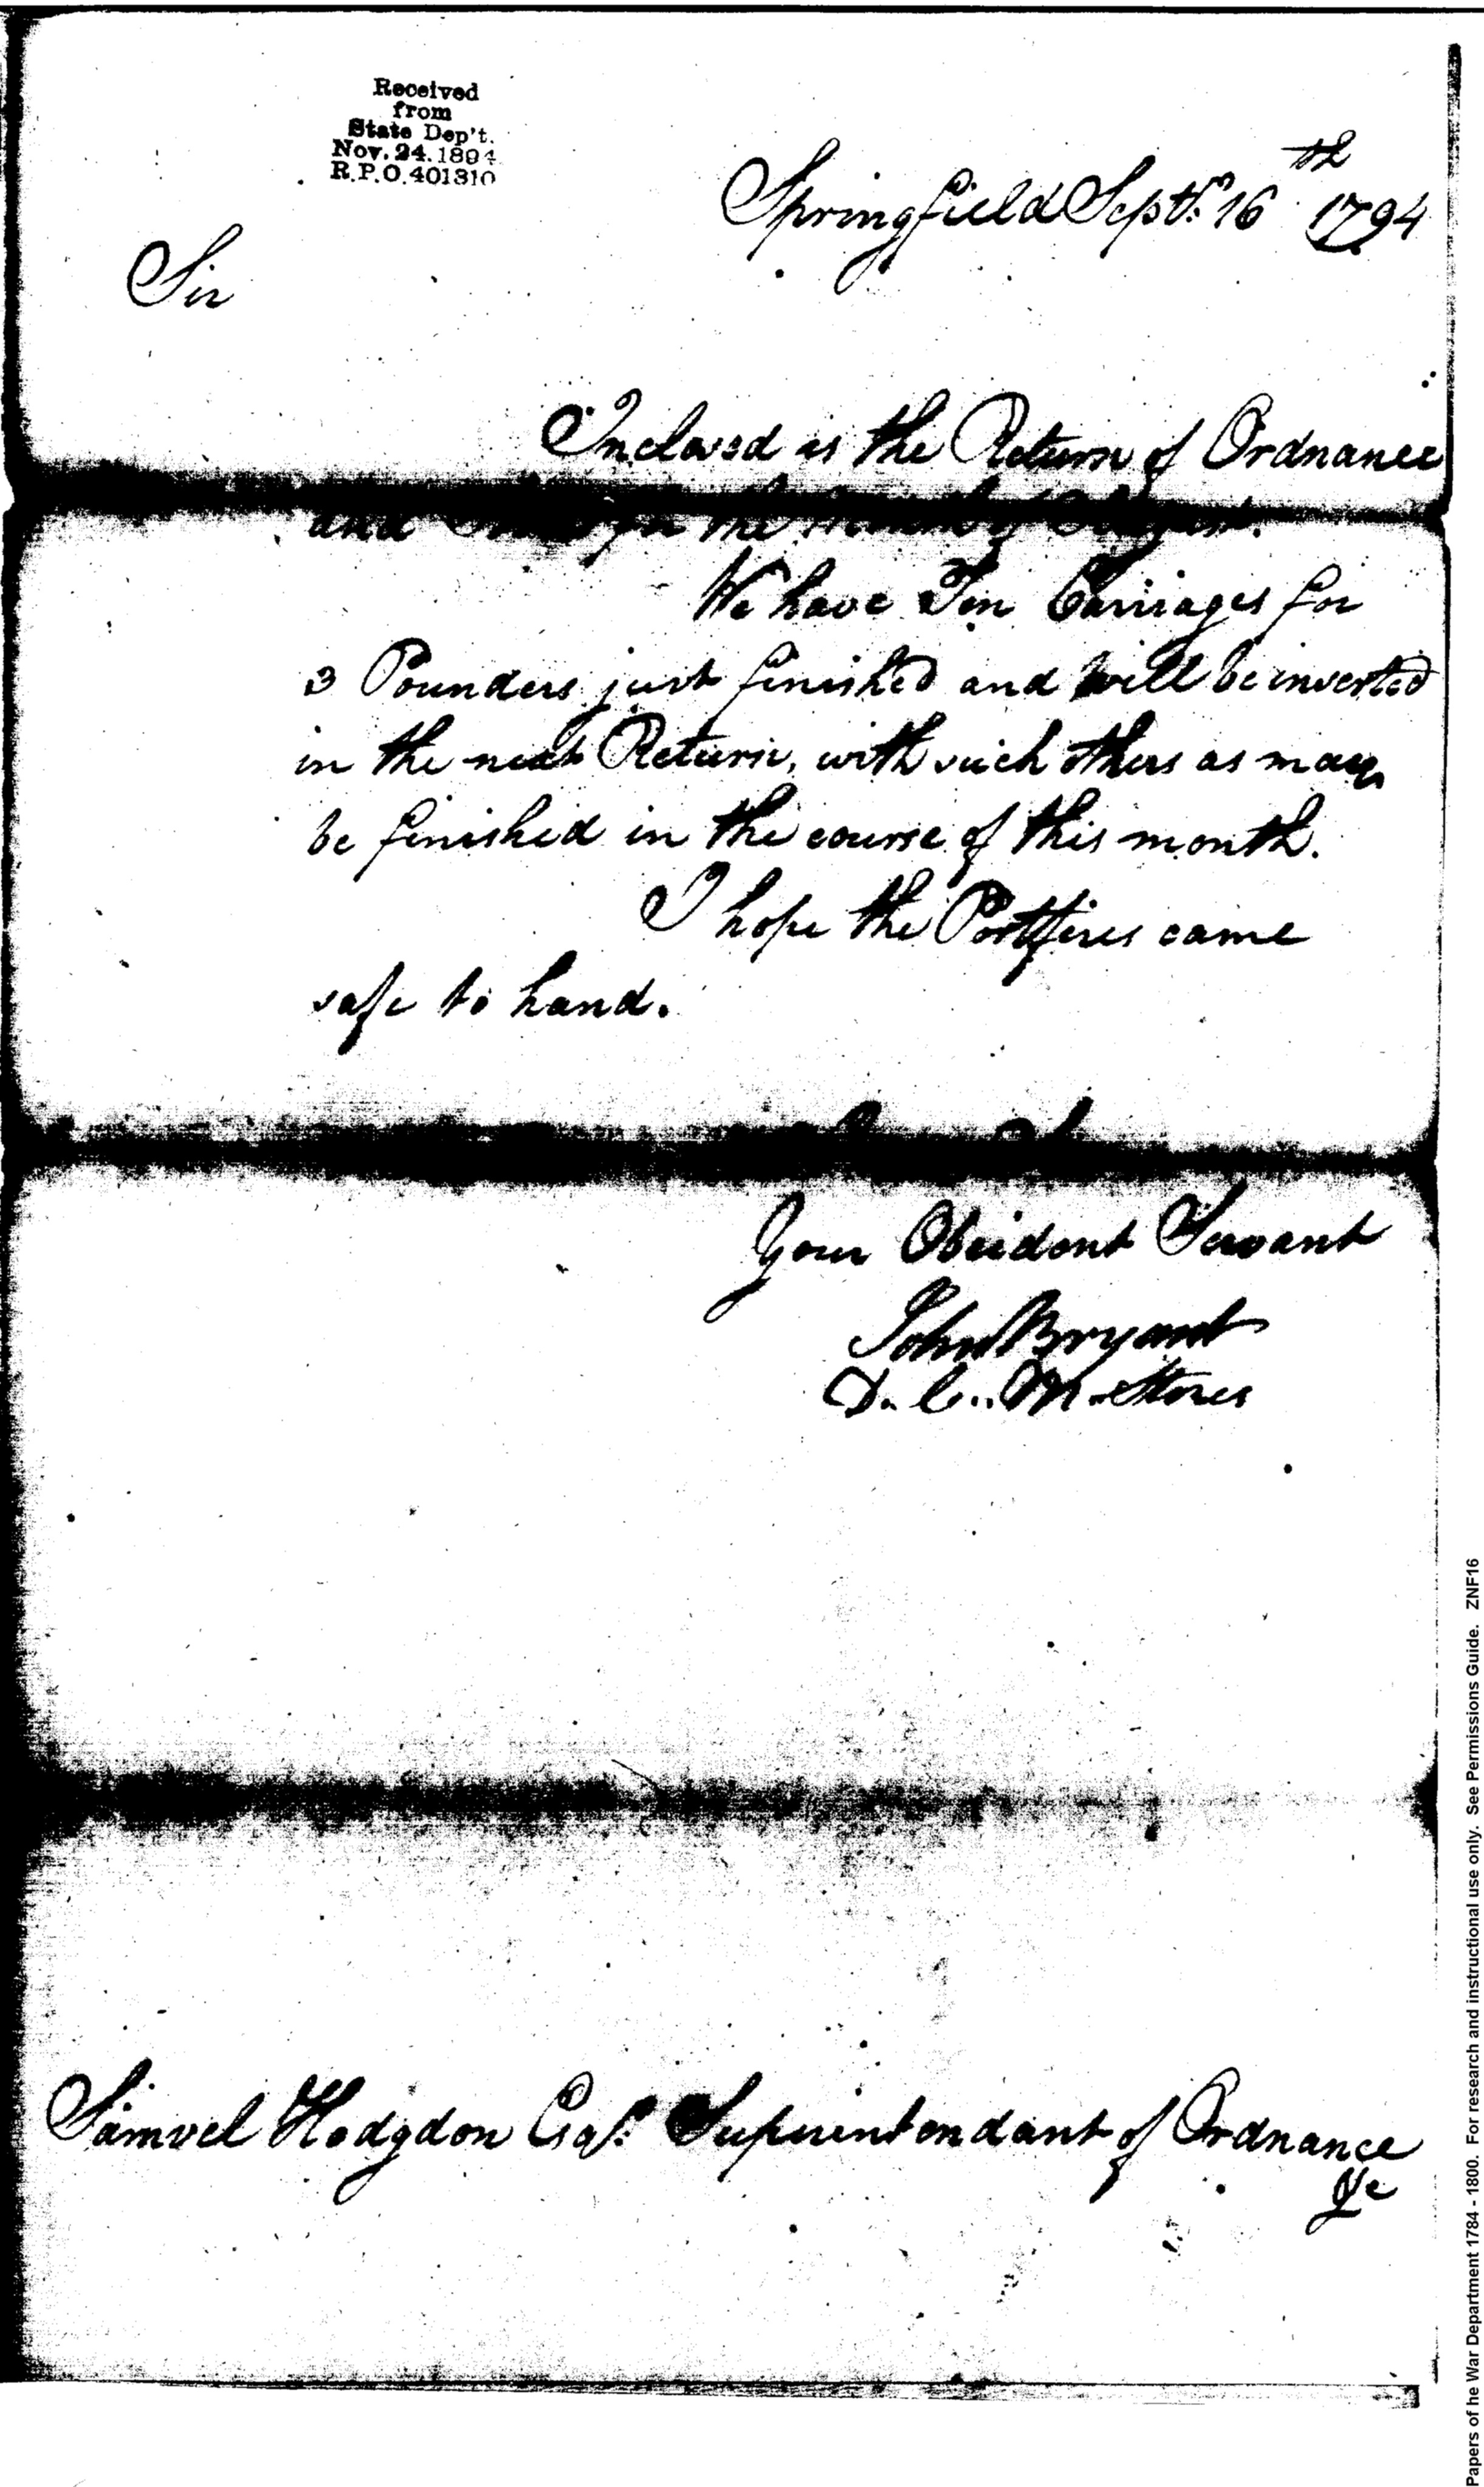 Received
from
State Dep't.
Nov. 24. 1894
R.P.O. 401310
Springfield Septr. 16th 1794
Sir
Inclosed is the Return of Ordnance
and for the Month of August.
We have Ten Carriages for
3 Pounders just finished and will be inserted
in the next Return, with such others as may
be finished in the course of this month.
I hope the Portfires came
safe to hand.
Your Obeident Servant
John Bryant
D. C. M. Stores
Samuel Hodgdon Esqr. Superintendant of Ordnance
&c
Papers of he War Department 1784 - 1800. For research and instructional use only. See Permissions Guide. ZNF16